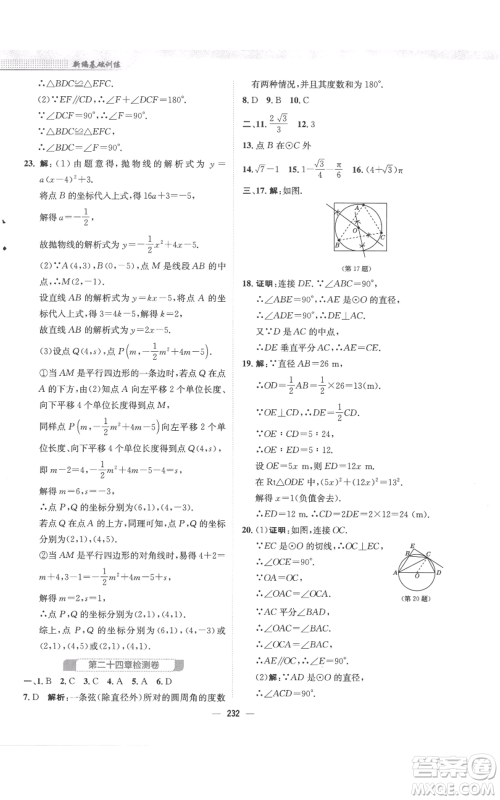 新编基础训练
∴△BDC≌△EFC.
(2)∵EF∥CD，∴∠F＝∠BDC.
∵∠BDC＝90°，∴∠F＝90°.
23. 解：(1)由题意得，抛物线的解析式为 y＝
a(x－4)²＋3.
将点 B 的坐标代入上式，得 16a＋3＝－5.
解得 a＝－1/2.
故抛物线的解析式为 y＝－1/2x²＋4x－5.
(2)∵A(4,3)，B(0,－5)，点 M 是线段 AB 的中
点，∴M(2,－1).
设直线 AB 的解析式为 y＝kx－5，将点 A 的坐
标代入上式，得 3＝4k－5，解得 k＝2.
故直线 AB 的解析式为 y＝2x－5.
(3)设点 Q(4,s)，点 P(m,－1/2m²＋4m－5).
①当 AM 是平行四边形的一条边时，若点 Q 在
A 的下方，由(2)可知，点 A 向左平移 2 个单位长
度、向下平移 4 个单位长度得到点 M，
同样点 P(m,－1/2m²＋4m－5)向左平移 2 个单位
长度、向下平移 4 个单位长度得到点 Q(4,s)，
即 m－2＝4，－1/2m²＋4m－5－4＝s，
解得 m＝6，s＝－3.
∴点 P，Q 的坐标分别为(6,1)，(4,－3).
若点 Q 在点 A 的上方，
同理可得点 P，Q 的坐标分别为(2,1)，(4,5).
②当 AM 是平行四边形的对角线时，
解得 m＝2，s＝1.
∴点 P，Q 的坐标分别为(2,1)，(4,1).
综上，点 P，Q 的坐标分别为(6,1)，(4,－3)或
(2,1)，(4,5)或(2,1)，(4,1).
第二十四章检测卷
一、1. B 2. C 3. C 4. A 5. D 6. A
7. D 解析：一条弦(除直径外)所对的圆周角的度数
有两种情况，并且其度数和为 180°.
8. D 9. B 10. C
二、11. 2√3/3 12. 3
13. 点 B 在⊙C 外
14. √7－1 15. √3/4－π/6 16. (4＋√3)π
三、17. 解：如图.
A
O
B
C
(第 17 题)
18. 证明：连接 DE. ∵∠ABC＝90°，
∴∠ABE＝90°.
∴AE 是⊙O 的直径.
∴∠ADE＝90°.
∴DE⊥AC.
又∵D 是 AC 的中点，
∴DE 是 AC 的垂直平分线.
∴AE＝CE.
19. 解：∵直径 AB＝26 m，
∴OD＝1/2AB＝1/2×26＝13(m).
∵OE⊥CD，∴DE＝1/2CD.
∵OE∶CD＝5∶24，
∴OE∶ED＝5∶12.
设 OE＝5x m，ED＝12x m，
在 Rt△ODE 中，(5x)²＋(12x)²＝13²，
解得 x＝1(负值舍去).
∴ED＝12 m. ∴CD＝2DE＝2×12×1＝24(m).
20. (1)证明：如图，连接 OC.
∵EC 是⊙O 的切线，
∴∠OCE＝90°.
∵OC∥AE，
∴∠OCE＋∠E＝180°.
∴∠E＝90°.
∵OC＝OA，
∴∠OAC＝∠OCA.
∴OC∥AE.
∴∠OCA＝∠EAC.
∴∠OAC＝∠EAC.
E
C
A
O
D
(第 20 题)
232